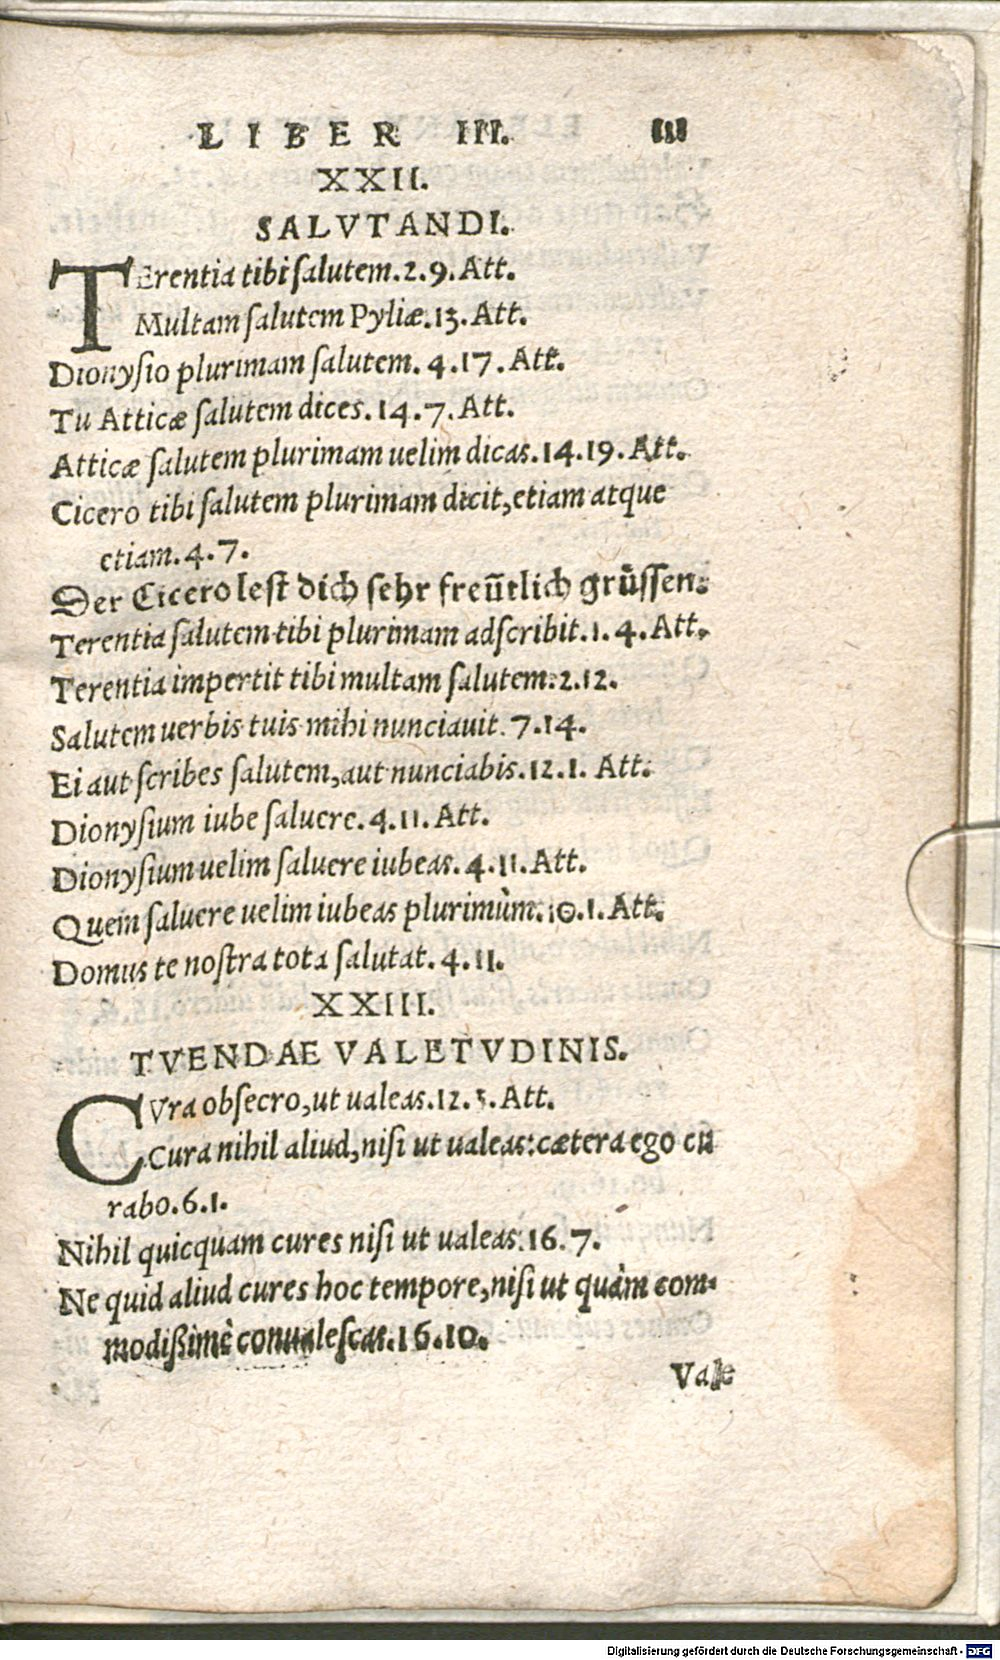 LIBER III. 111
XXII.
SALVTANDI.
TErentia tibi salutem.2.9.Att.
Multam salutem Pyliæ.13.Att.
Dionysio plurimam salutem. 4.17.Att.
Tu Atticæ salutem dices.14.7.Att.
Atticæ salutem plurimam uelim dicas.14.19.Att.
Cicero tibi salutem plurimam dicit,etiam atque
etiam.4.7.
Der Cicero lest dich sehr freũtlich grüssen.
Terentia salutem tibi plurimam adscribit.1.4.Att.
Terentia impertit tibi multam salutem.2.12.
Salutem uerbis tuis mihi nunciauit. 7.14.
Ei aut scribes salutem,aut nunciabis.12.1. Att.
Dionysium iube saluere.4.11.Att.
Dionysium uelim saluere iubeas.4.11.Att.
Quem saluere uelim iubeas plurimùm.10.1.Att.
Domus te nostra tota salutat.4.11.
XXIII.
TVENDAE VALETVDINIS.
CVra obsecro,ut ualeas.12.3.Att.
Cura nihil aliud,nisi ut ualeas:cætera ego cu
rabo.6.1.
Nihil quicquam cures nisi ut ualeas.16.7.
Ne quid aliud cures hoc tempore,nisi ut quàm com-
modißimè conualescas.16.10.
Vale
Digitalisierung gefördert durch die Deutsche Forschungsgemeinschaft - DFG